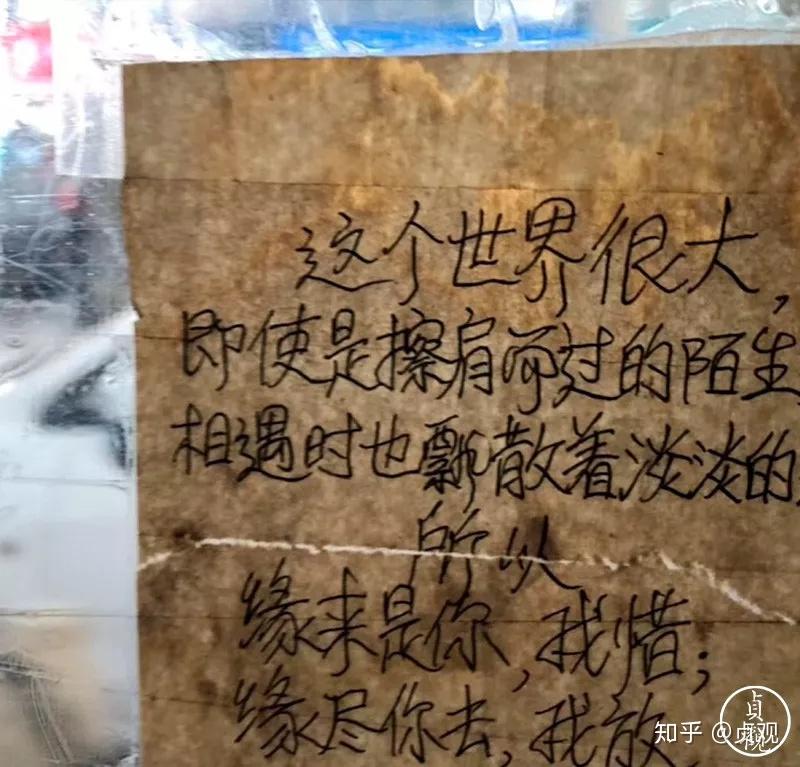 这个世界很大，
即使是擦肩而过的陌生
相遇时也飘散着淡淡的
所以
缘来是你，我惜；
缘尽你去，我放
贞观
知乎 @贞观